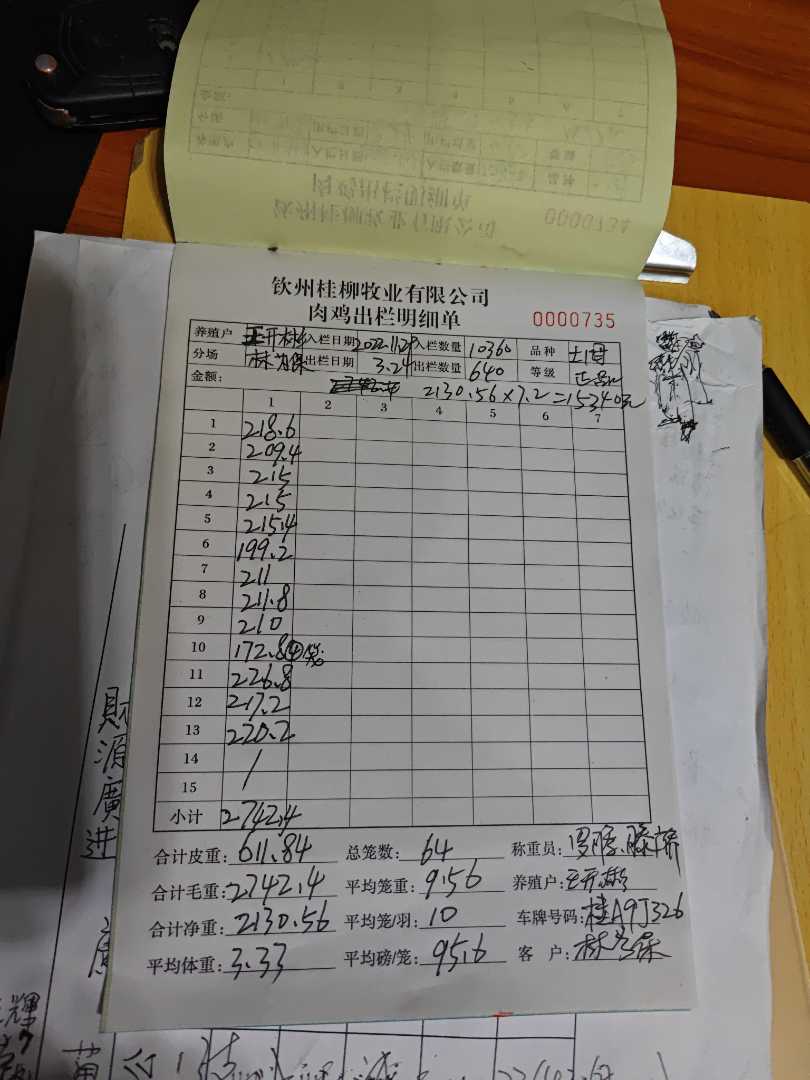 钦州桂柳牧业有限公司
肉鸡出栏明细单 0000735
养殖户 王开彬 入栏日期 2022.11.29 入栏数量 10360 品种 土2母
分场 林为保 出栏日期 3.24 出栏数量 640 等级 正品
金额: 2130.56×7.2=15340元
1 2 3 4 5 6 7
1 218.6
2 209.4
3 215
4 215
5 215.4
6 199.2
7 211
8 211.8
9 210
10 172.8 ④笼
11 226.8
12 217.2
13 220.2
14 /
15
小计 2742.4
合计皮重: 611.84 总笼数: 64 称重员:
合计毛重: 2742.4 平均笼重: 9.56 养殖户: 王开彬
合计净重: 2130.56 平均笼/羽: 10 车牌号码: 桂A9J326
平均体重: 3.33 平均磅/笼: 95.6 客 户: 林为保
0000734
財源廣进